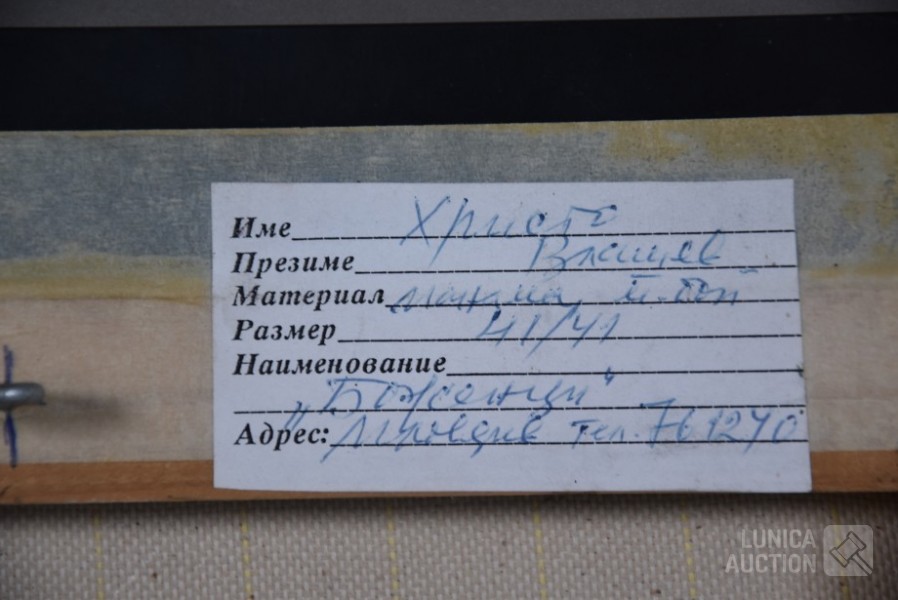 Име Христо
Презиме Влашев
Материал м. б-ой
Размер 41/41
Наименование
„Боженци"
Адрес: Пловдив тел. 761240
LUNICA
AUCTION